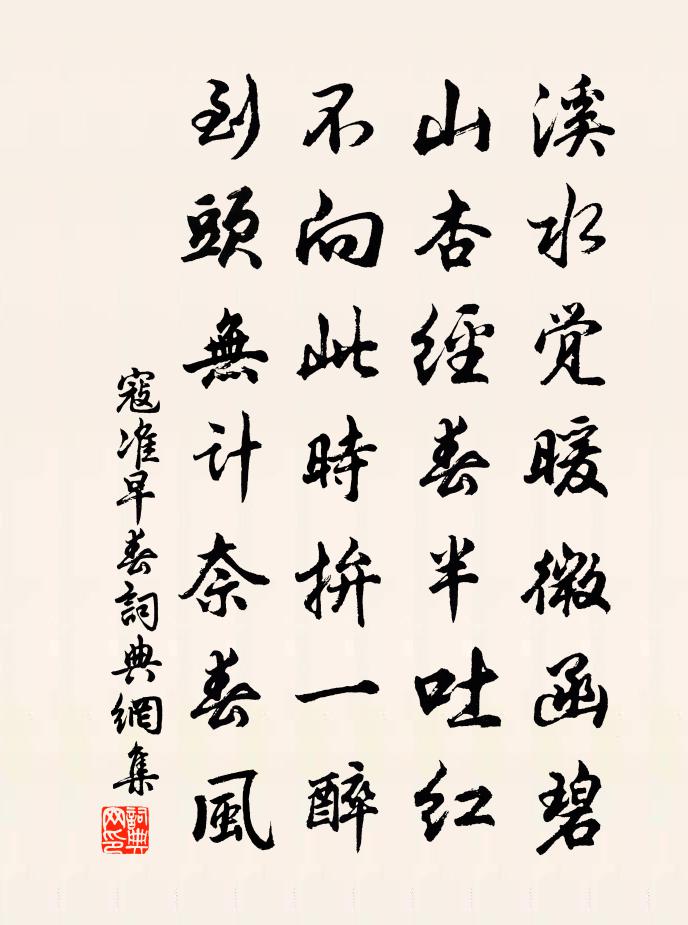 溪水觉暖微函碧
山杏經春半吐红
不向此時拚一醉
到頭無计奈春風
寇准早春詞典網集
詞典
网印